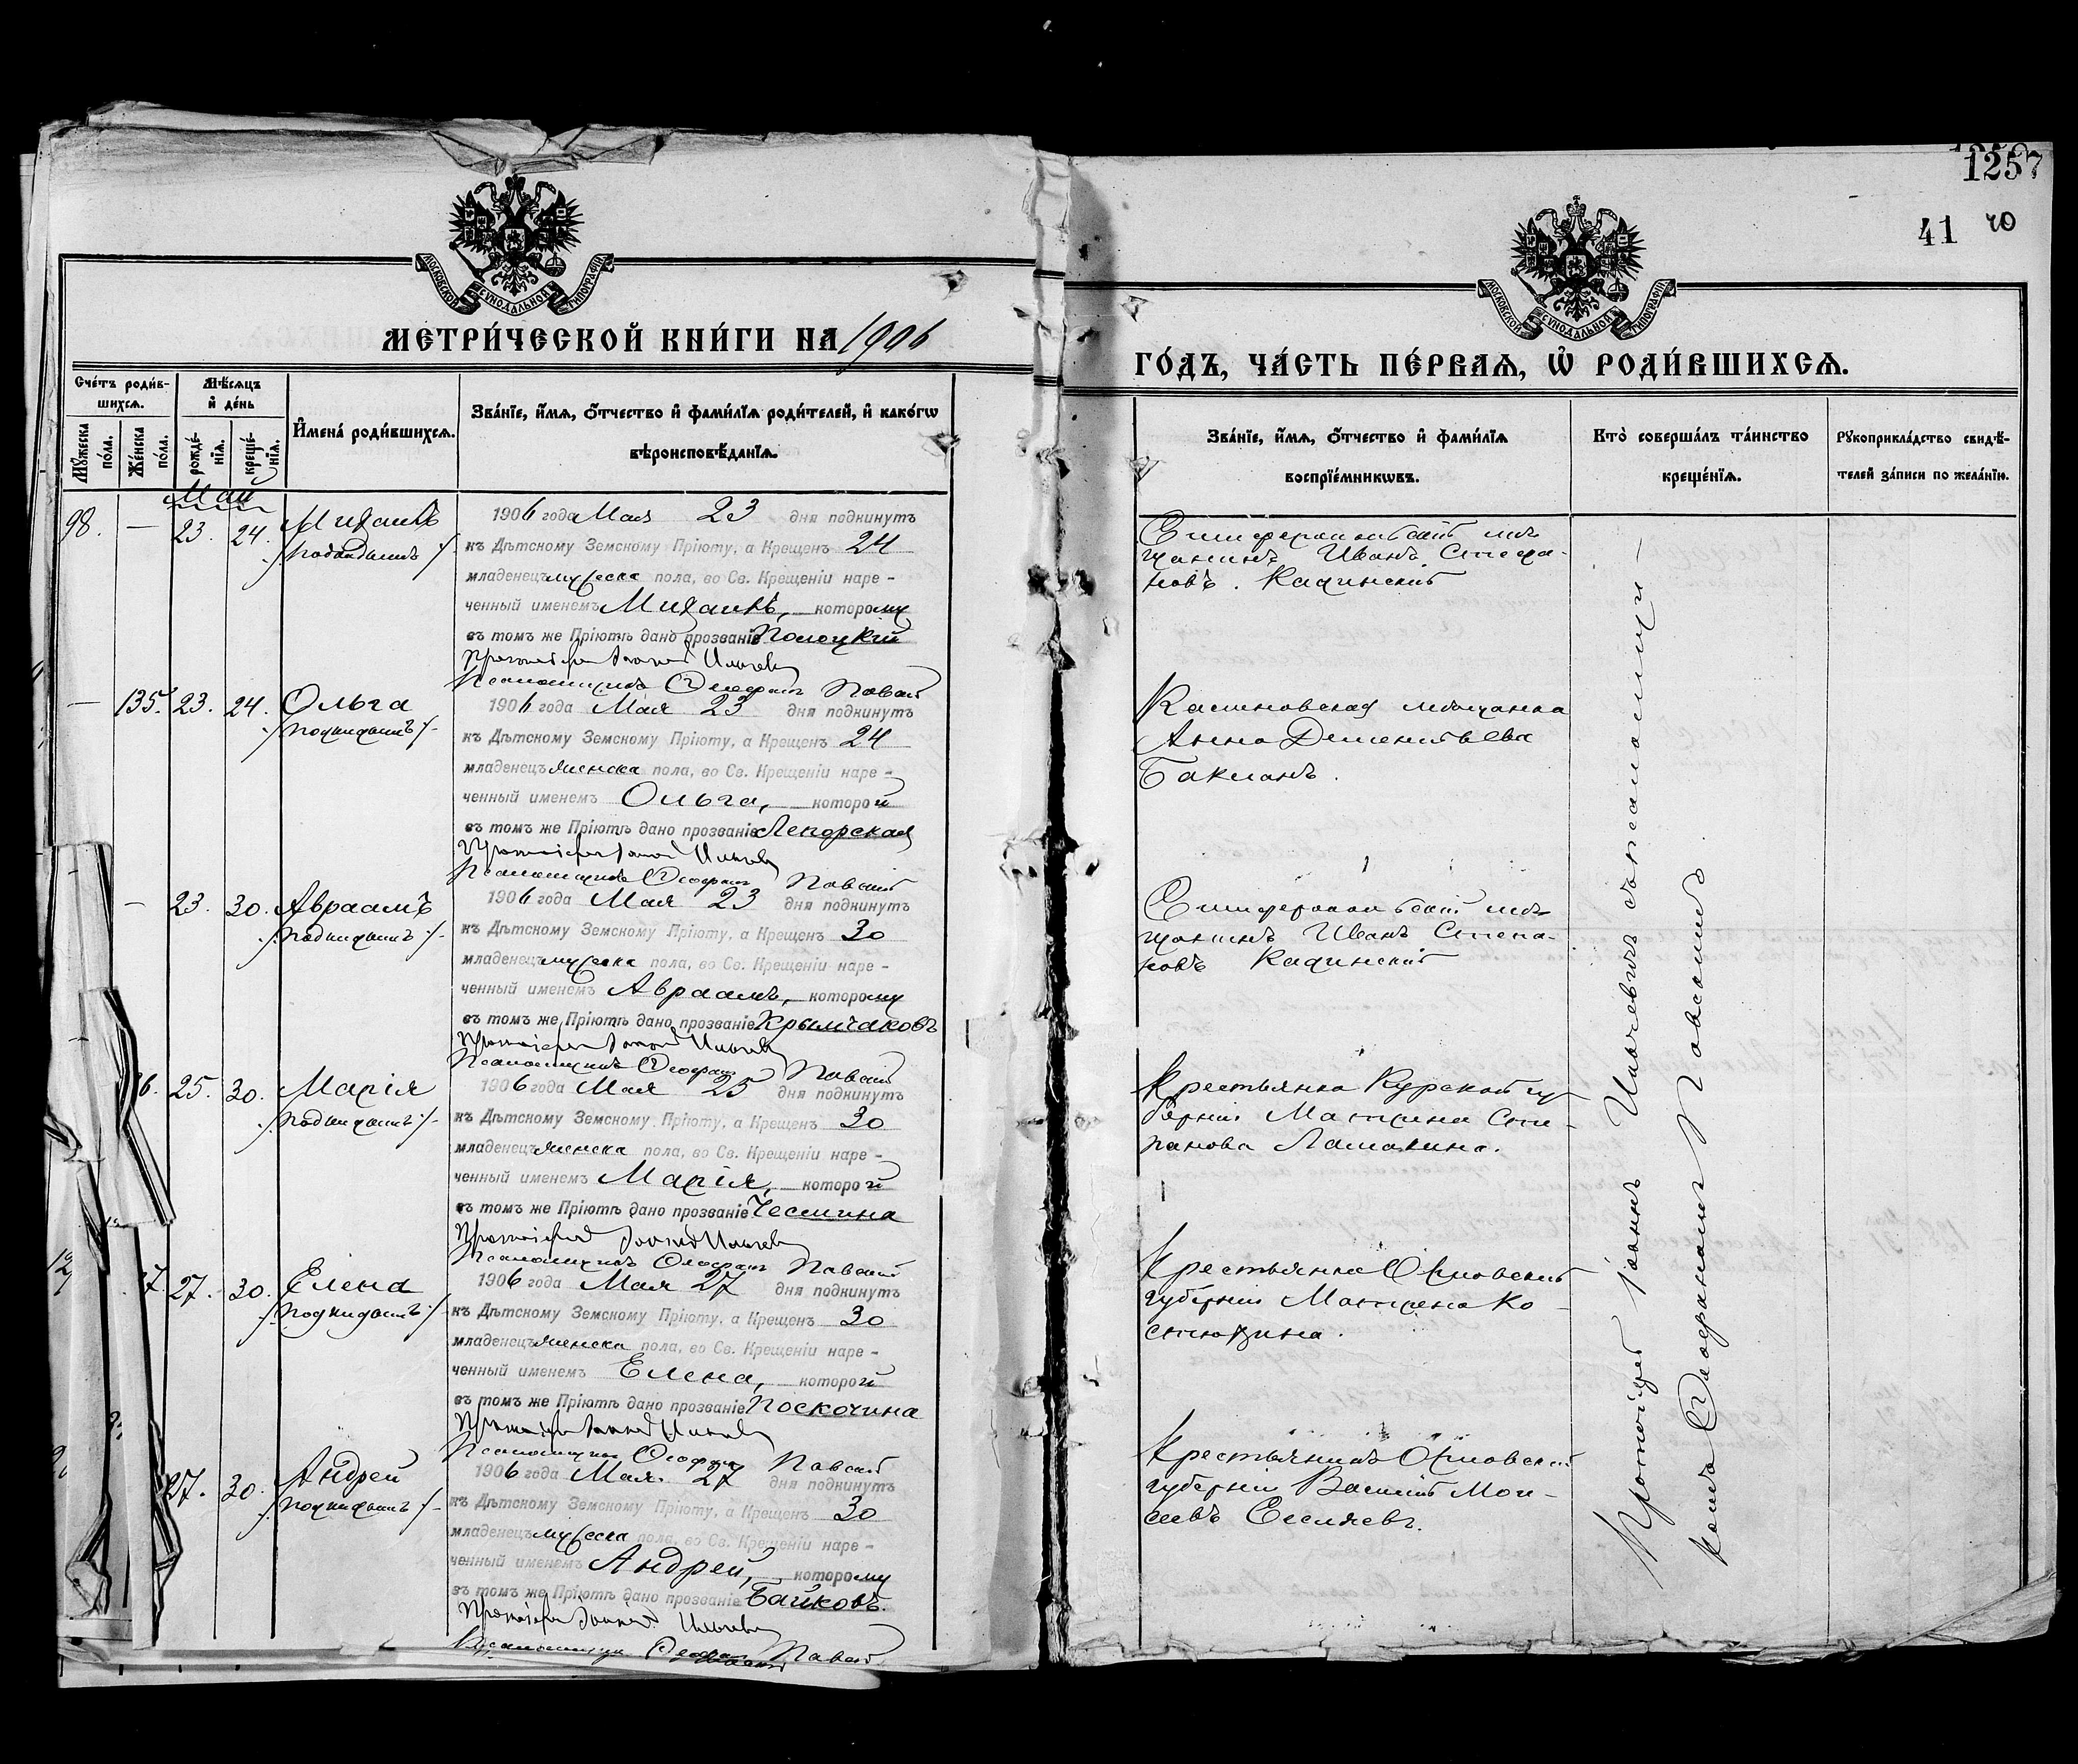 1257
41 40
МОСКОВСКОЙ СѴНОДАЛЬНОЙ ТИПОГРАФІИ
МОСКОВСКОЙ СѴНОДАЛЬНОЙ ТИПОГРАФІИ
МЕТРИ́ЧЕСКОЙ КНИ́ГИ НА 1906
ГО́ДЪ, ЧА́СТЬ ПЕ́РВАѦ, Ѡ҆ РОДИ́ВШИХСѦ.
Сче́тъ роди́в-
шихсѧ.
Мꙋ́жеска по́ла.
Же́нска по́ла.
Мѣ́сѧцъ и҆ де́нь
рожде́-нїѧ.
креще́-нїѧ.
И҆мена̀ роди́вшихсѧ.
Зва́нїе, и҆́мѧ, ѻ҆́тчество и҆ фами́лїѧ роди́телей, и҆ како́гѡ
вѣроисповѣ́данїѧ.
Зва́нїе, и҆́мѧ, ѻ҆́тчество и҆ фами́лїѧ
воспрїе́мникѡвъ.
Кто̀ соверша́лъ та́инство
креще́нїѧ.
Рꙋкоприкла́дство свидѣ́-
телей за́писи по жела́нїю.
Май
98. — 23. 24. Михаилъ
/подкидышъ/
1906 года Мая 23 дня подкинутъ
къ Дѣтскому Земскому Пріюту, а Крещенъ 24
младенецъ мужеска пола, во Св. Крещеніи наре-
ченный именемъ Михаилъ, которому
въ томъ же Пріютѣ дано прозваніе Полоцкій
Протоіерей Іоаннъ Ильчевъ
Псаломщикъ Ѳеофанъ Павскій
Симферопольскій мѣ-
щанинъ Иванъ Стефа-
новъ Качинскій
— 135. 23. 24. Ольга
/подкидышъ/
1906 года Мая 23 дня подкинутъ
къ Дѣтскому Земскому Пріюту, а Крещенъ 24
младенецъ женска пола, во Св. Крещеніи наре-
ченный именемъ Ольга, которой
въ томъ же Пріютѣ дано прозваніе Лепорская
Протоіерей Іоаннъ Ильчевъ
Псаломщикъ Ѳеофанъ Павскій
мѣщанка
Анна Дементьева
— 23. 30. Авраамъ
/подкидышъ/
1906 года Мая 23 дня подкинутъ
къ Дѣтскому Земскому Пріюту, а Крещенъ 30
младенецъ мужеска пола, во Св. Крещеніи наре-
ченный именемъ Авраамъ, которому
въ томъ же Пріютѣ дано прозваніе Крымчаковъ
Протоіерей Іоаннъ Ильчевъ
Псаломщикъ Ѳеофанъ Павскій
Симферопольскій мѣ-
щанинъ Иванъ Степа-
новъ Качинскій
6. 25. 30. Марія
/подкидышъ/
1906 года Мая 25 дня подкинутъ
къ Дѣтскому Земскому Пріюту, а Крещенъ 30
младенецъ женска пола, во Св. Крещеніи наре-
ченный именемъ Марія, которой
въ томъ же Пріютѣ дано прозваніе Чесмина
Протоіерей Іоаннъ Ильчевъ
Псаломщикъ Ѳеофанъ Павскій
Крестьянка Курской гу
берніи Матрена Сте-
панова Ламакина.
7. 27. 30. Елена
/подкидышъ/
1906 года Мая 27 дня подкинутъ
къ Дѣтскому Земскому Пріюту, а Крещенъ 30
младенецъ женска пола, во Св. Крещеніи наре-
ченный именемъ Елена, которой
въ томъ же Пріютѣ дано прозваніе Поскочина
Протоіерей Іоаннъ Ильчевъ
Псаломщикъ Ѳеофанъ Павскій
Крестьянка Орловской
губерніи Матрена Ко-
27. 30. Андрей
/подкидышъ/
1906 года Мая 27 дня подкинутъ
къ Дѣтскому Земскому Пріюту, а Крещенъ 30
младенецъ мужеска пола, во Св. Крещеніи наре-
ченный именемъ Андрей, которому
въ томъ же Пріютѣ дано прозваніе Байковъ.
Протоіерей Іоаннъ Ильчевъ
Псаломщикъ Ѳеофанъ Павскій
Крестьянинъ Орловской
губерніи Василій Мои-
сеевъ
Протоіерей Іоаннъ Ильчевъ съ псаломщи-
комъ Ѳеофаномъ Павскимъ